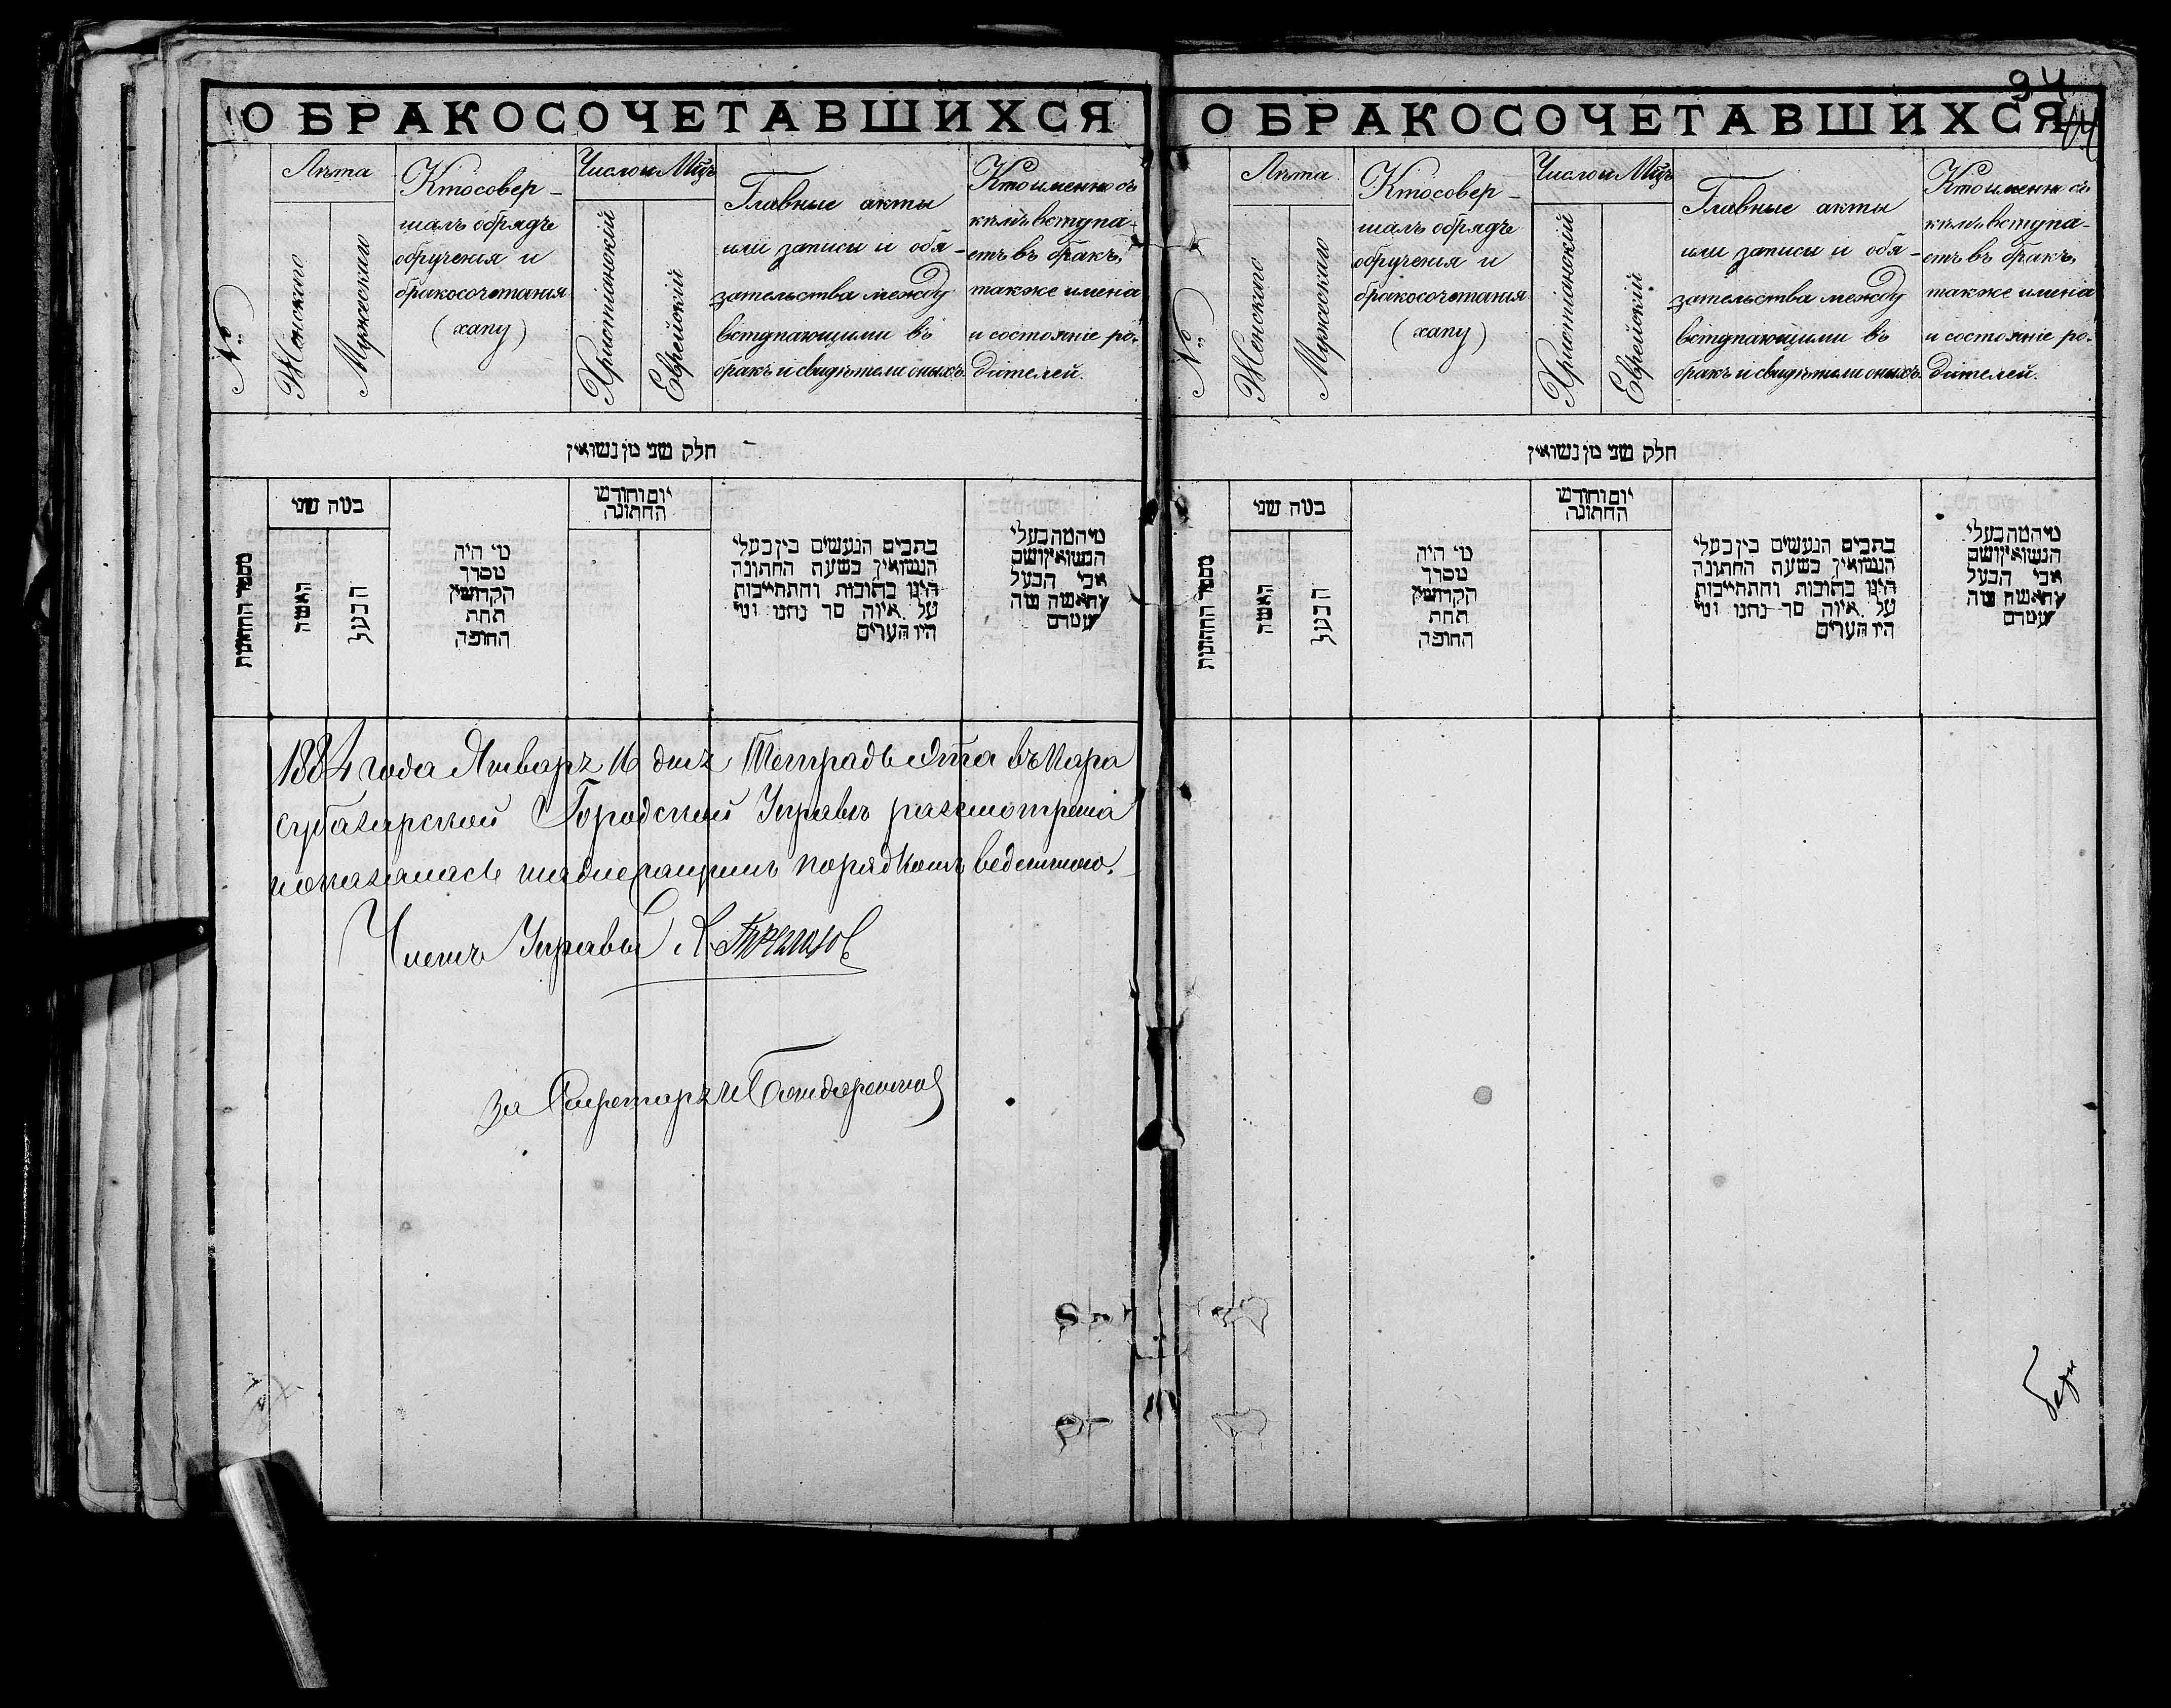 О БРАКОСОЧЕТАВШИХСЯ
№
Лѣта
Женскаго
Мужескаго
Кто совер-
шалъ обрядъ
обрученія и
бракосочетанія
(хапу)
Число и Мцъ
Христіанскій
Еврейскій
Главные акты
или записи и обя-
зательства между
вступающими въ
бракъ и свидѣтели оныхъ.
Кто именно съ
кѣмъ вступа-
етъ въ бракъ,
также имена
и состояніе ро-
дителей.
חלק שני מן נשואין
מספר החתונות
במה שני
האשה
הבעל
מי היה
מסדר
הקדושין
תחת
החופה
יום וחודש
החתונה
כתבים הנעשים בין בעלי
הנשואין בשעת החתונה
היינו כתובות והתחייבות
על איזה סך נתנו ומי
היו הערים
מיהמה בעלי
הנשואין ושם
אבי הבעל
והאשה מה
1884 года Января 16 дня Тетрадь эта въ Кара
субазарской Городской Управѣ разсмотрена
показалась надлежащимъ порядкомъ веденною.
Членъ Управы
За Секретаря
94
О БРАКОСОЧЕТАВШИХСЯ
№
Лѣта
Женскаго
Мужескаго
Кто совер-
шалъ обрядъ
обрученія и
бракосочетанія
(хапу)
Число и Мцъ
Христіанскій
Еврейскій
Главные акты
или записи и обя-
зательства между
вступающими въ
бракъ и свидѣтели оныхъ.
Кто именно съ
кѣмъ вступа-
етъ въ бракъ,
также имена
и состояніе ро-
дителей.
חלק שני מן נשואין
מספר החתונות
במה שני
האשה
הבעל
מי היה
מסדר
הקדושין
תחת
החופה
יום וחודש
החתונה
כתבים הנעשים בין בעלי
הנשואין בשעת החתונה
היינו כתובות והתחייבות
על איזה סך נתנו ומי
היו הערים
מיהמה בעלי
הנשואין ושם
אבי הבעל
והאשה מה